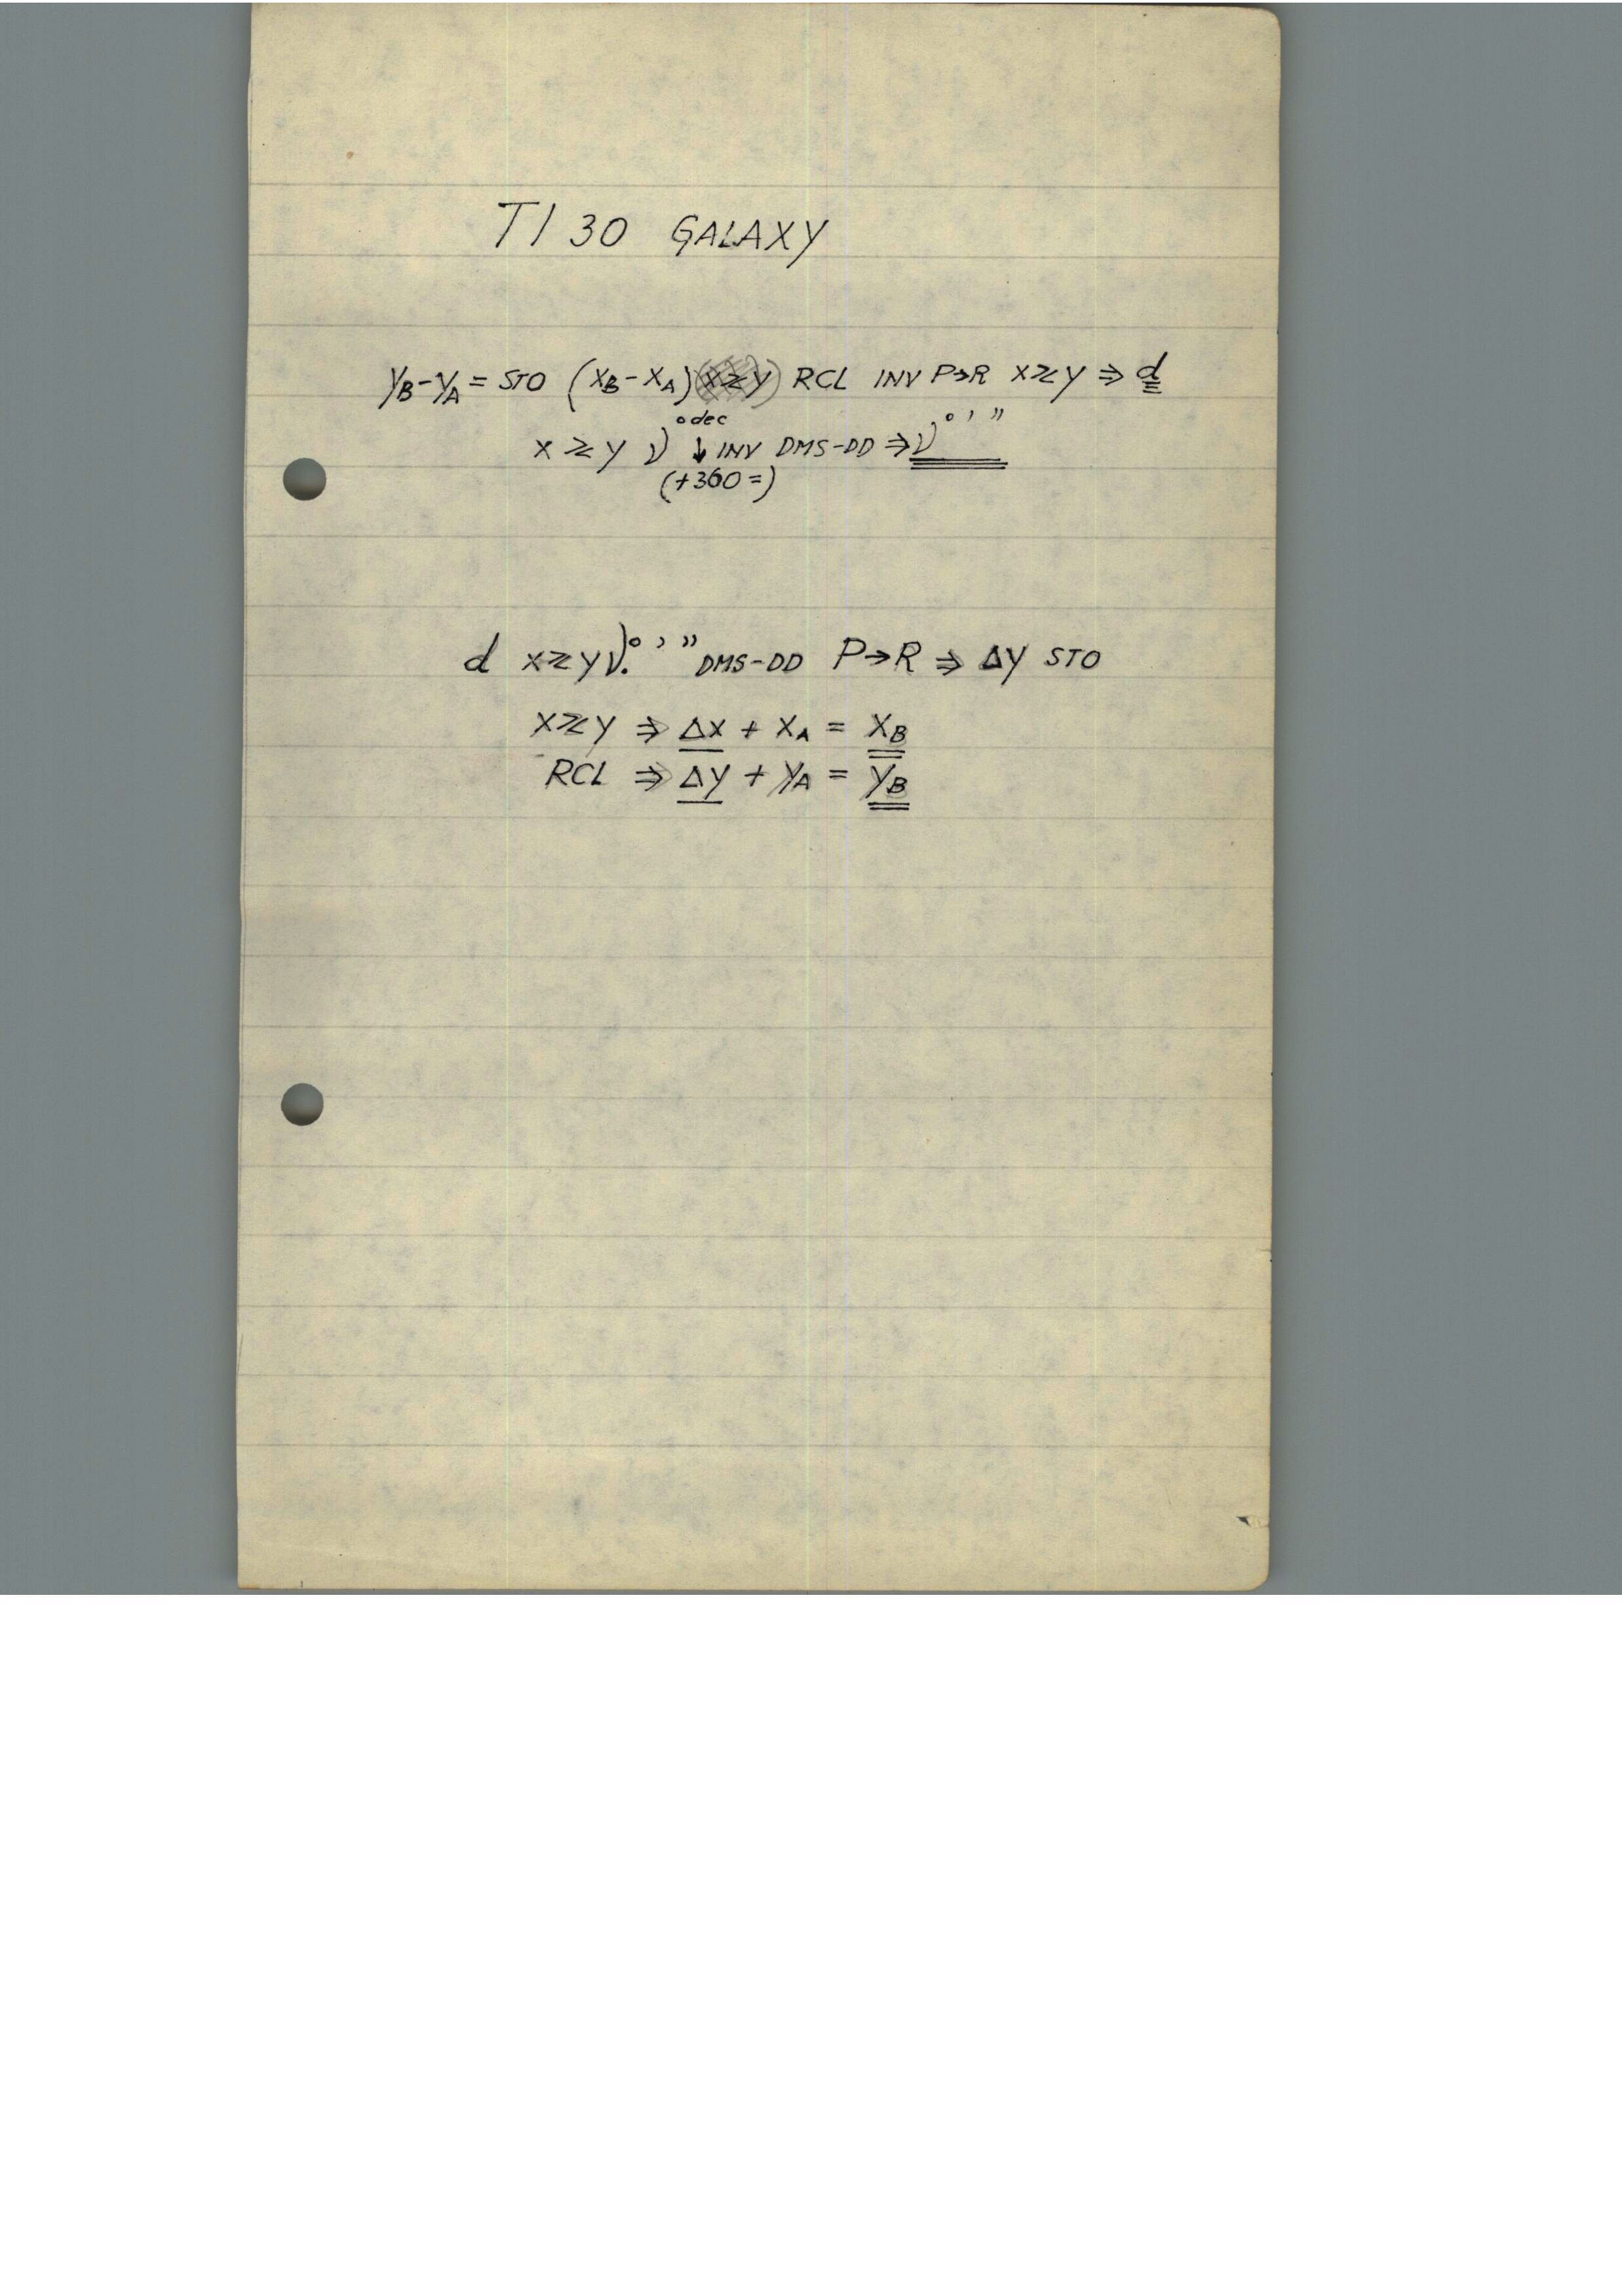 TI 30 GALAXY
yB-yA = STO (xB-xA) x≷y RCL INV P→R x≷y ⇒ d
° dec
x≷y ν ↓ INV DMS-DD ⇒ ν ° ' "
(+360=)
d x≷y ν.° ' " DMS-DD P→R ⇒ Δy STO
x≷y ⇒ Δx + xA = xB
RCL ⇒ Δy + yA = yB